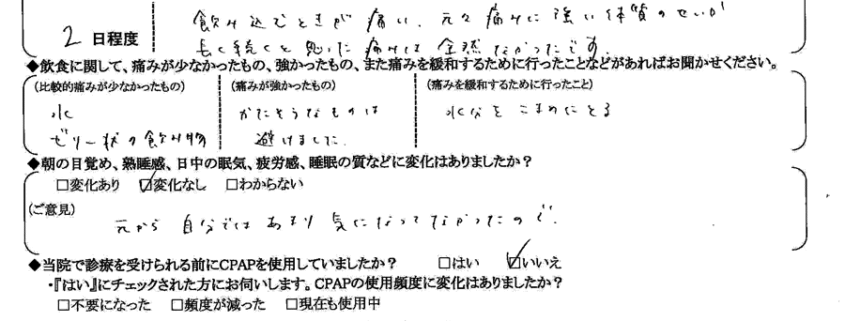 2 日程度
飲み込むときが痛い、元々痛みに強い体質のせいか
長く続くと思った痛みは全然なかったです。
◆飲食に関して、痛みが少なかったもの、強かったもの、また痛みを緩和するために行ったことなどがあればお聞かせください。
(比較的痛みが少なかったもの)
水
ゼリー状の飲み物
(痛みが強かったもの)
かたそうなものは
避けました。
(痛みを緩和するために行ったこと)
水分をこまめにとる
◆朝の目覚め、熟睡感、日中の眠気、疲労感、睡眠の質などに変化はありましたか？
□変化あり ☑変化なし □わからない
(ご意見)
元から自分ではあまり気になってなかったので。
◆当院で診療を受けられる前にCPAPを使用していましたか？ □はい ☑いいえ
・『はい』にチェックされた方にお伺いします。CPAPの使用頻度に変化はありましたか？
□不要になった □頻度が減った □現在も使用中